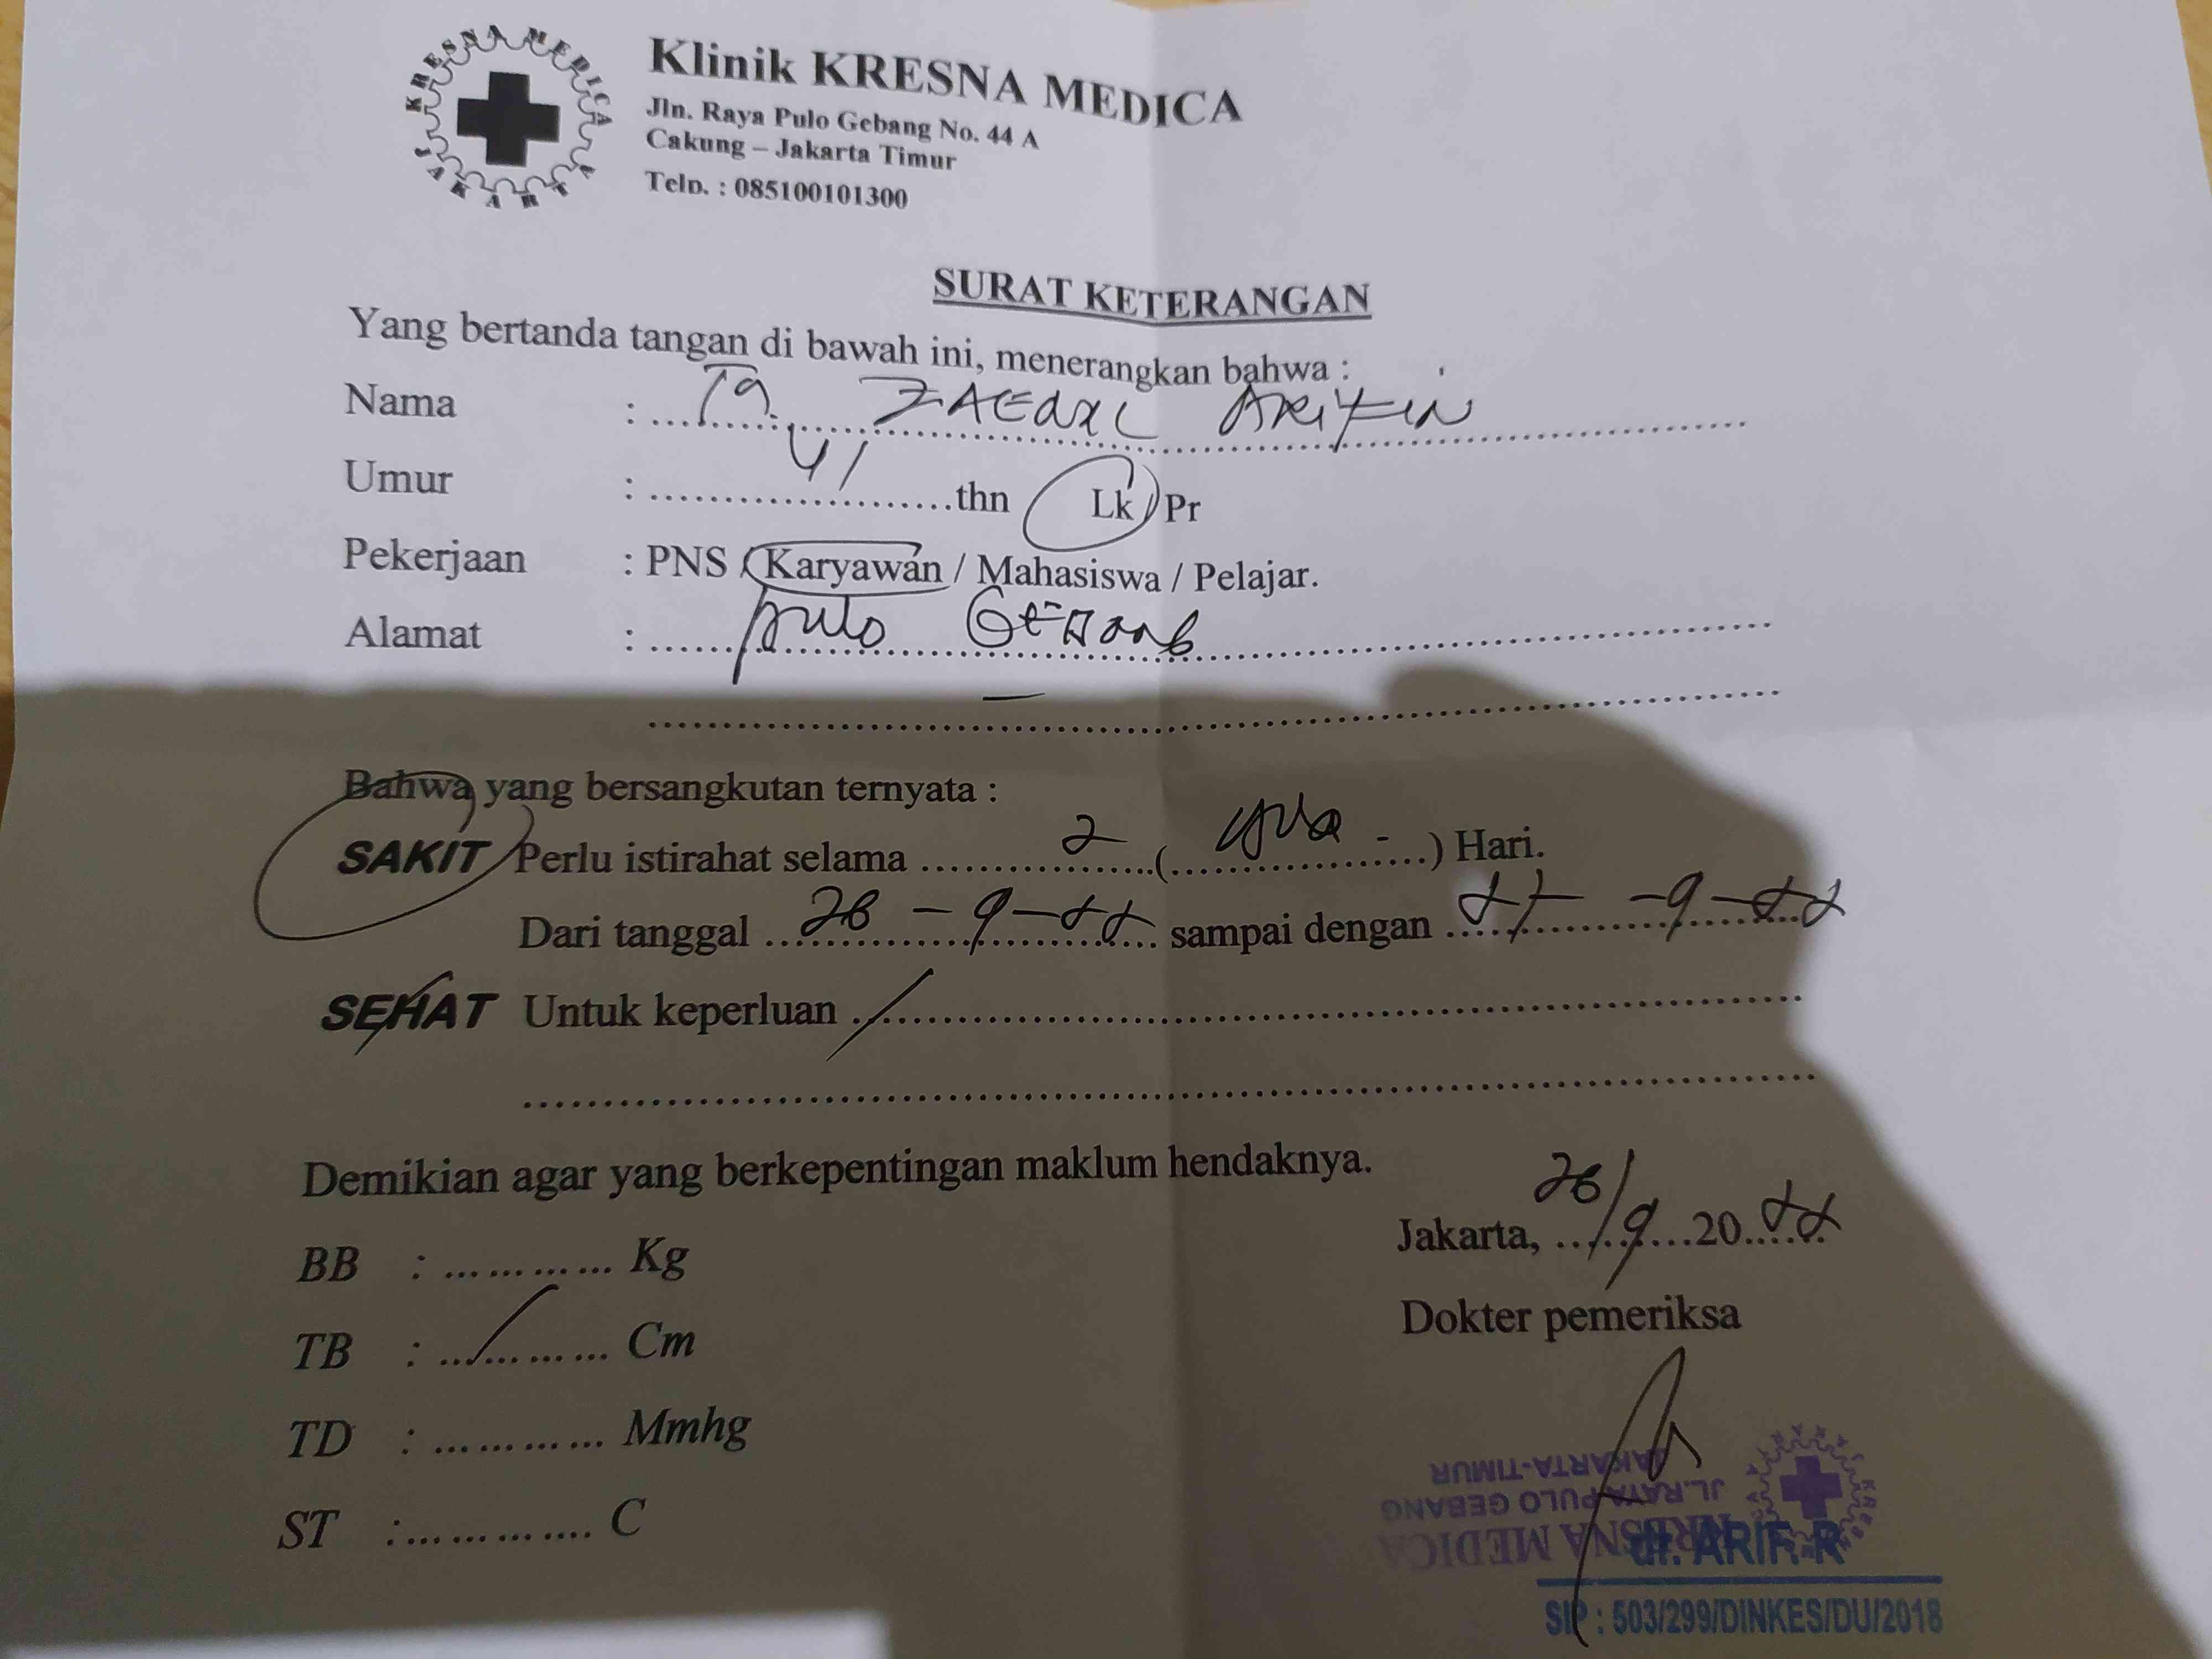 KRESNA MEDICA
JAKARTA
Klinik KRESNA MEDICA
Jln. Raya Pulo Gebang No. 44 A
Cakung – Jakarta Timur
Telp. : 085100101300
SURAT KETERANGAN
Yang bertanda tangan di bawah ini, menerangkan bahwa :
Nama : Tn. ARIFIN
Umur : 41 thn Lk / Pr
Pekerjaan : PNS / Karyawan / Mahasiswa / Pelajar.
Alamat : Pulo Gebang
Bahwa yang bersangkutan ternyata :
SAKIT Perlu istirahat selama 2 ( dua ) Hari.
Dari tanggal 26 - 9 - 22 sampai dengan 27 - 9 - 22
SEHAT Untuk keperluan
Demikian agar yang berkepentingan maklum hendaknya.
Jakarta, 26/9 2022
BB : ............ Kg
TB : ............ Cm
TD : ............ Mmhg
ST : ............. C
Dokter pemeriksa
KRESNA MEDICA
JL.RAYA PULO GEBANG
JAKARTA-TIMUR
dr. ARIF. R
SIP : 503/299/DINKES/DU/2018